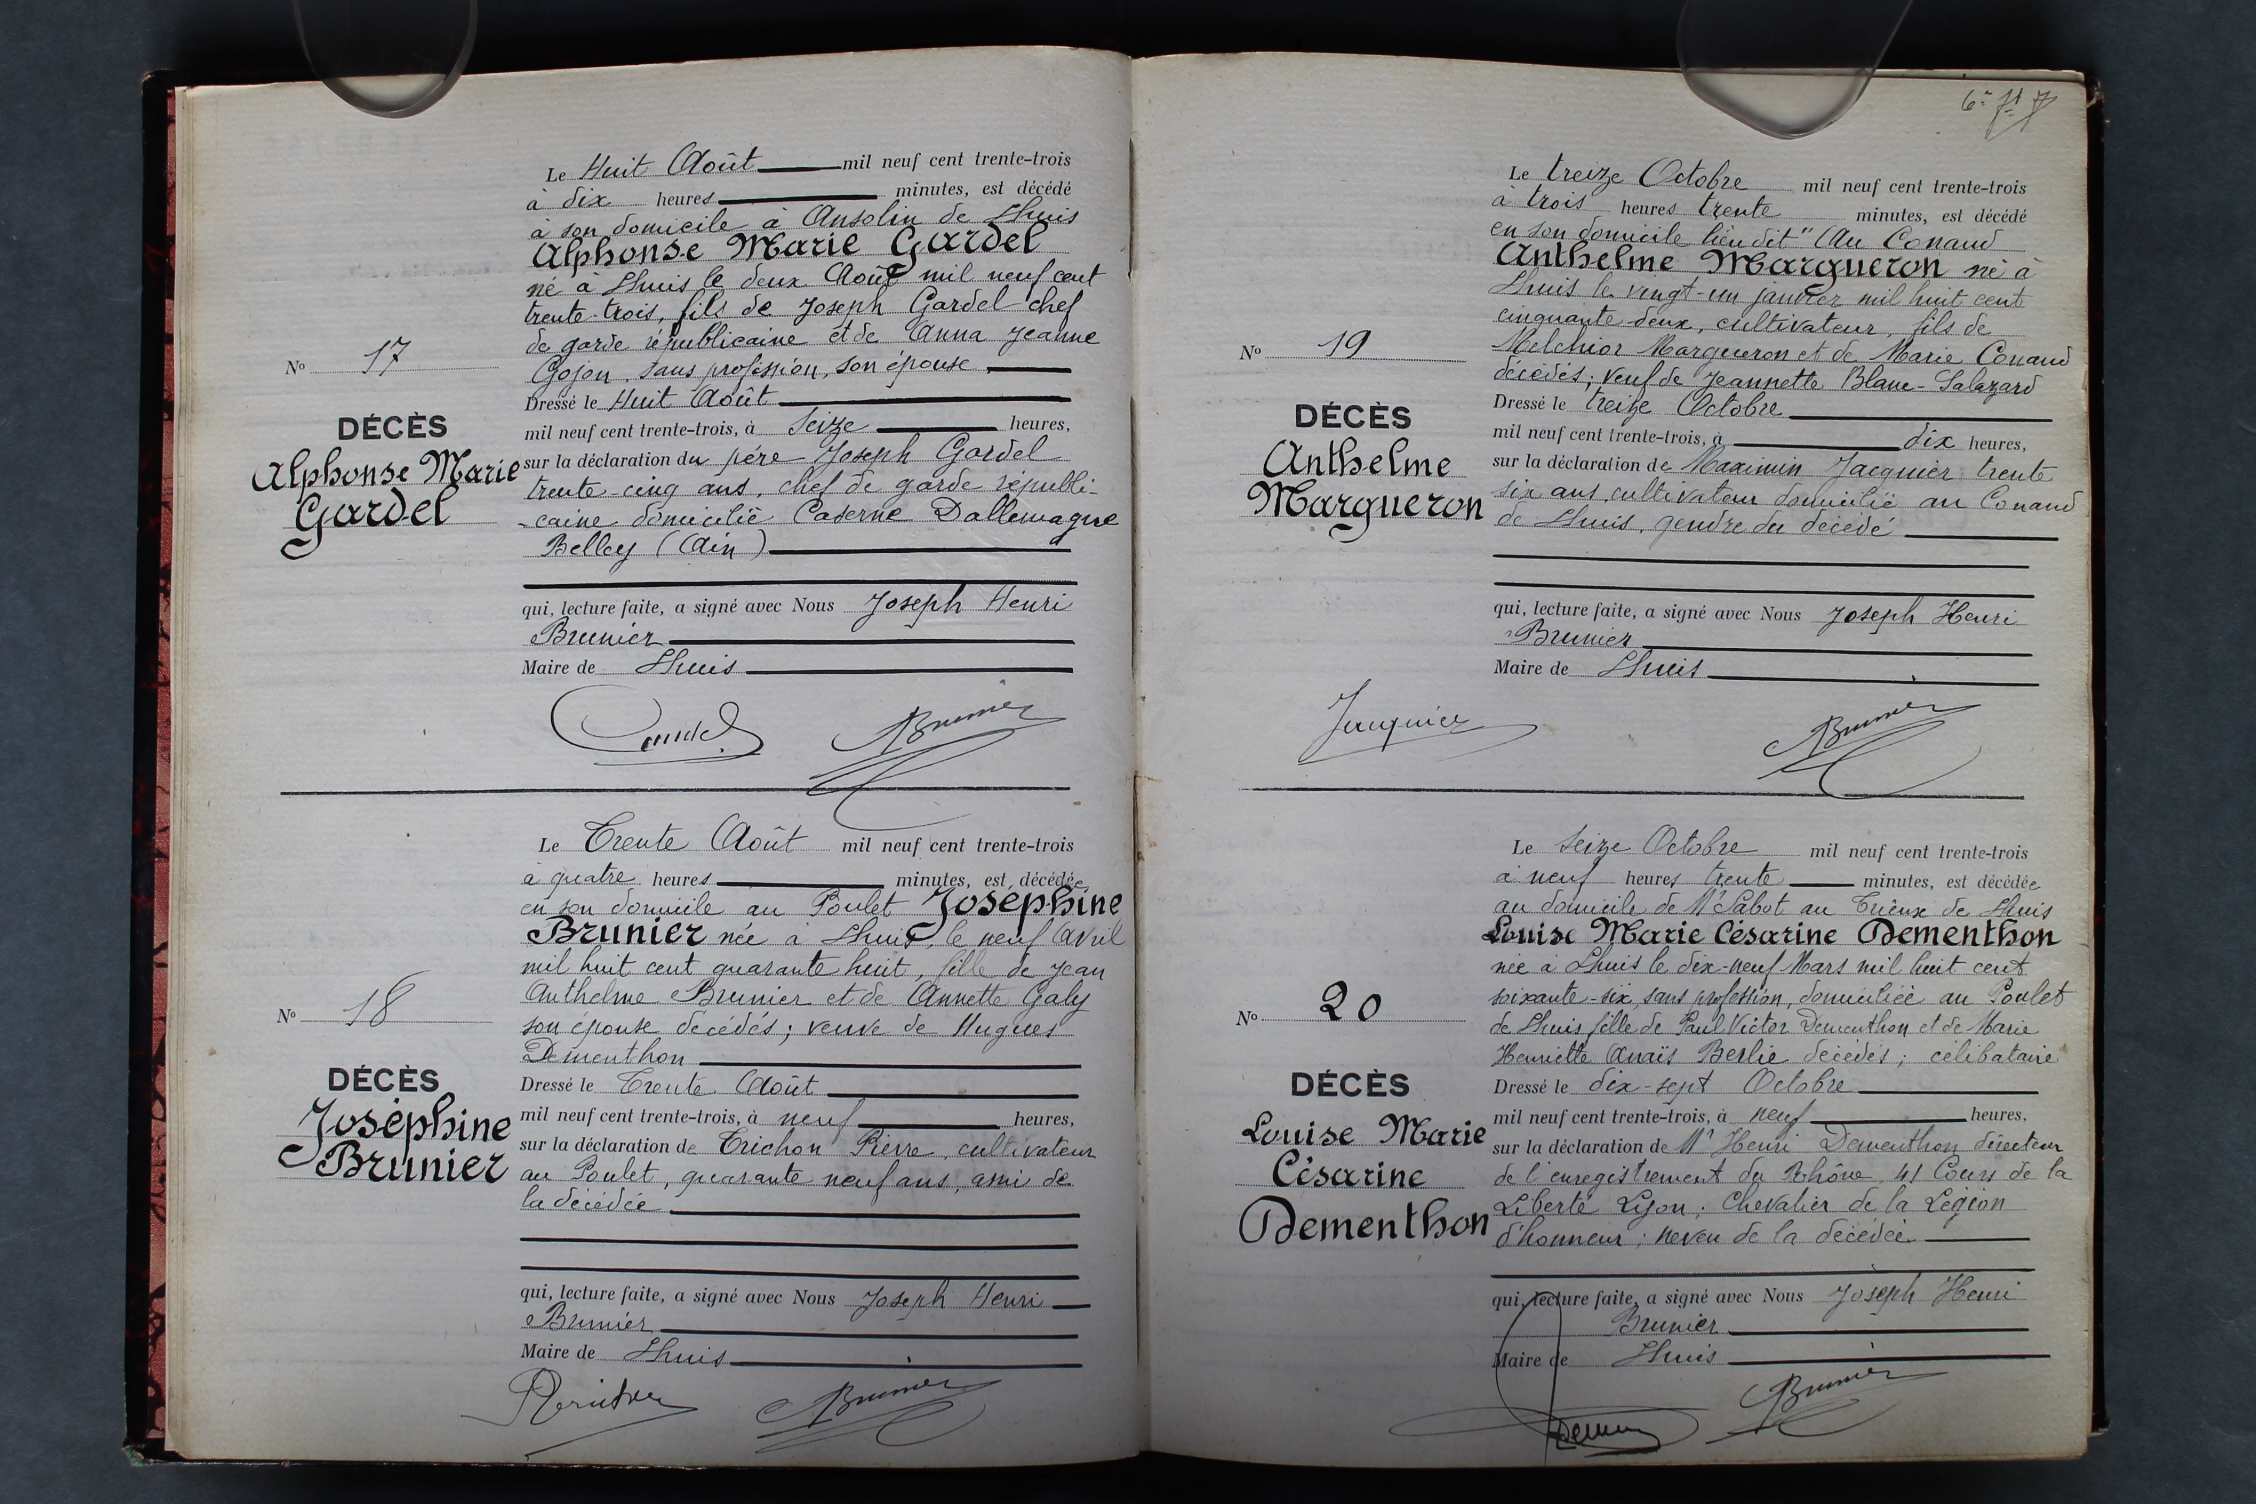 Le Huit Août mil neuf cent trente-trois
à dix heures minutes, est décédé
à son domicile à Ansolin de Lhuis
Alphonse Marie Gardel
né à Lhuis le deux Août mil neuf cent
trente-trois, fils de Joseph Gardel chef
de garde républicaine et de Anna Jeanne
Gojon, sans profession, son épouse
Dressé le Huit Août
mil neuf cent trente-trois, à Seize heures,
sur la déclaration du père Joseph Gardel
trente-cinq ans, chef de garde républi-
-caine domicilié Caserne Dallemagne
Belley (Ain)
qui, lecture faite, a signé avec Nous Joseph Henri
Brunier
Maire de Lhuis
No 17
DÉCÈS
Alphonse Marie
Gardel
Gardel Brunier
Le Trente Août mil neuf cent trente-trois
à quatre heures minutes, est décédée
en son domicile au Poulet Joséphine
Brunier née à Lhuis, le neuf Avril
mil huit cent quarante huit, fille de Jean
Anthelme Brunier et de Annette Galy
son épouse décédés; veuve de Hugues
Dementhon
Dressé le Trente Août
mil neuf cent trente-trois, à neuf heures,
sur la déclaration de Trichon Pierre, cultivateur
au Poulet, quarante neuf ans, ami de
la décédée
qui, lecture faite, a signé avec Nous Joseph Henri
Brunier
Maire de Lhuis
No 18
DÉCÈS
Joséphine
Brunier
Brunier
Le treize Octobre mil neuf cent trente-trois
à trois heures trente minutes, est décédé
en son domicile lieu dit "Au Conand
Anthelme Margueron né à
Lhuis le vingt-un janvier mil huit cent
cinquante-deux, cultivateur, fils de
Melchior Margueron et de Marie Conand
décédés; veuf de Jeannette Blanc-Salazard
Dressé le treize Octobre
mil neuf cent trente-trois, à dix heures,
sur la déclaration de Maximin Jacquier trente
six ans, cultivateur domicilié au Conand
de Lhuis, gendre du décédé
qui, lecture faite, a signé avec Nous Joseph Henri
Brunier
Maire de Lhuis
No 19
DÉCÈS
Anthelme
Margueron
Jacquier Brunier
Le Seize Octobre mil neuf cent trente-trois
à neuf heures trente minutes, est décédée
au domicile de Mr Sabot au Trieux de Lhuis
Louise Marie Césarine Dementhon
née à Lhuis le dix-neuf Mars mil huit cent
soixante-six, sans profession, domiciliée au Poulet
de Lhuis fille de Paul Victor Dementhon et de Marie
Henriette Anaïs Berlie décédés; célibataire
Dressé le dix-sept Octobre
mil neuf cent trente-trois, à neuf heures,
sur la déclaration de Mr Henri Dementhon directeur
de l'enregistrement du Rhône, 41 Cours de la
Liberté Lyon; Chevalier de la Légion
d'honneur; neveu de la décédée
qui, lecture faite, a signé avec Nous Joseph Henri
Brunier
Maire de Lhuis
No 20
DÉCÈS
Louise Marie
Césarine
Dementhon
Brunier